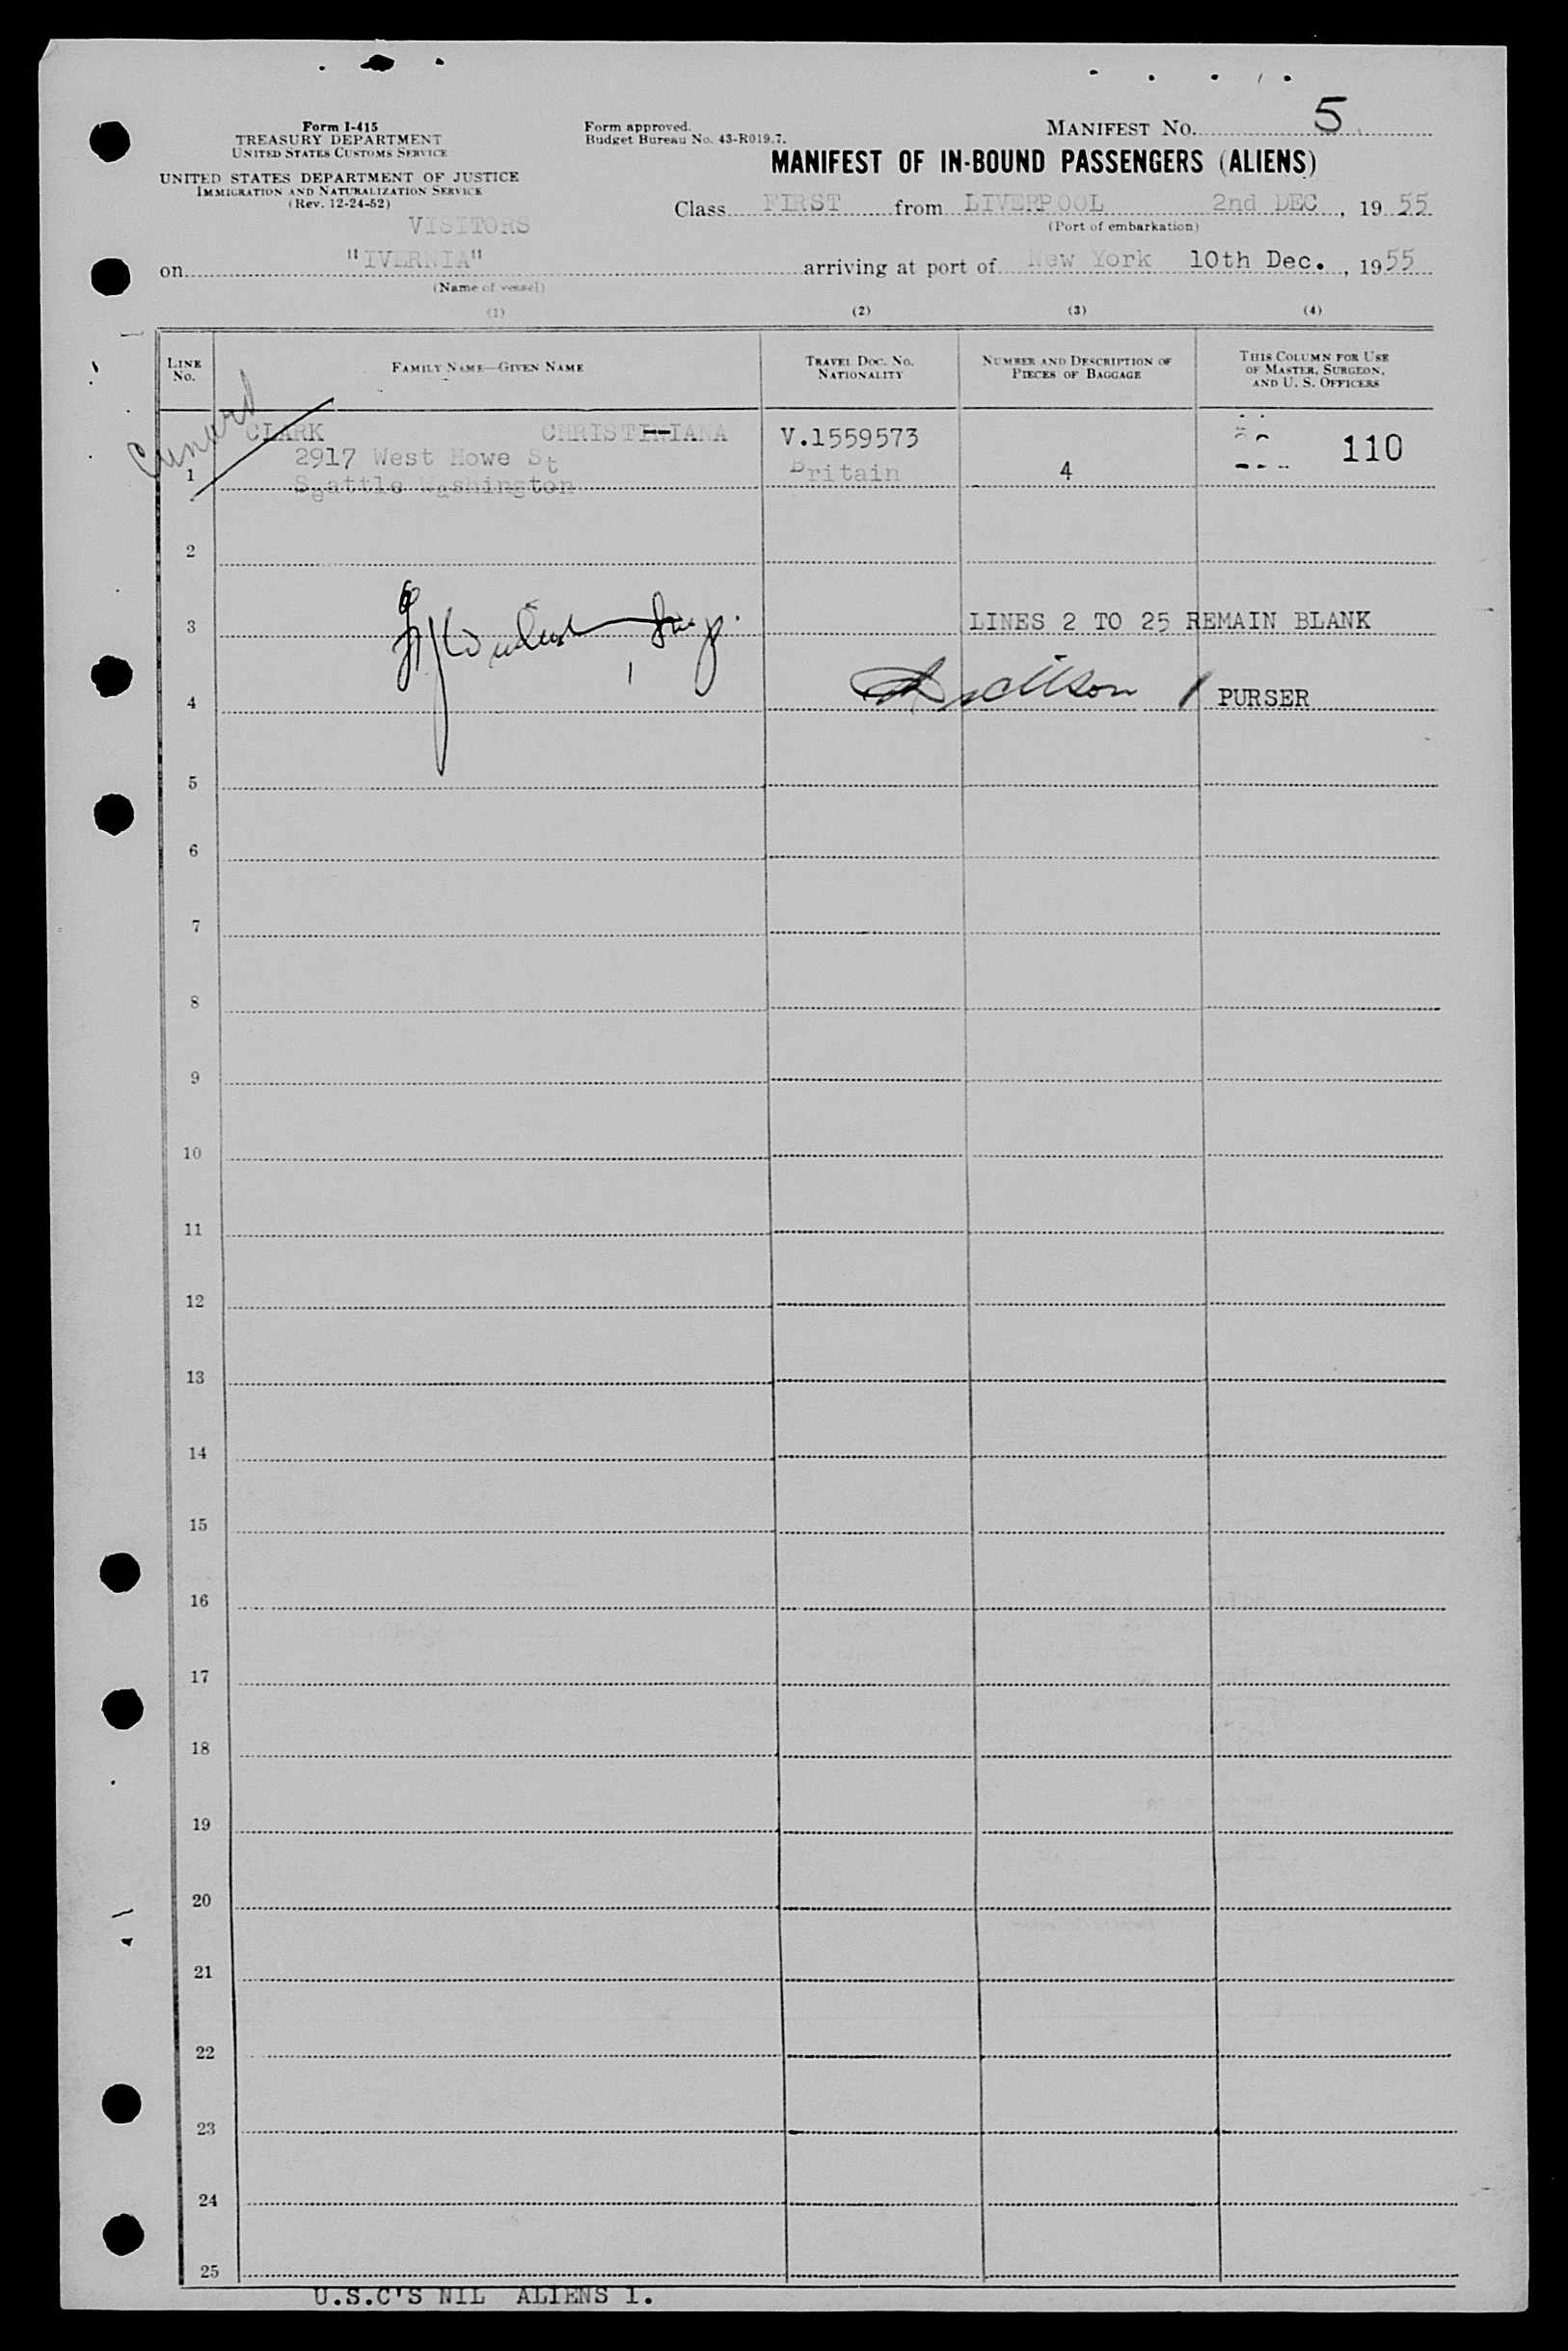 Form I-415
TREASURY DEPARTMENT
UNITED STATES CUSTOMS SERVICE
UNITED STATES DEPARTMENT OF JUSTICE
IMMIGRATION AND NATURALIZATION SERVICE
(Rev. 12-24-52)
Form approved.
Budget Bureau No. 43-R019.7.
MANIFEST NO. 5
MANIFEST OF IN-BOUND PASSENGERS (ALIENS)
VISITORS
Class FIRST from LIVERPOOL 2nd DEC, 1955
(Port of embarkation)
on "IVERNIA" arriving at port of New York 10th Dec., 1955
(Name of vessel)
(1) (2) (3) (4)
LINE No.
FAMILY NAME—GIVEN NAME
TRAVEL DOC. NO. NATIONALITY
NUMBER AND DESCRIPTION OF PIECES OF BAGGAGE
THIS COLUMN FOR USE OF MASTER, SURGEON, AND U. S. OFFICERS
Cunard
CLARK V.1559573 110
2917 West Howe St
1 Seattle Washington Britain 4
2
3 LINES 2 TO 25 REMAIN BLANK
4 PURSER
5
6
7
8
9
10
11
12
13
14
15
16
17
18
19
20
21
22
23
24
25
U.S.C'S NIL ALIENS 1.